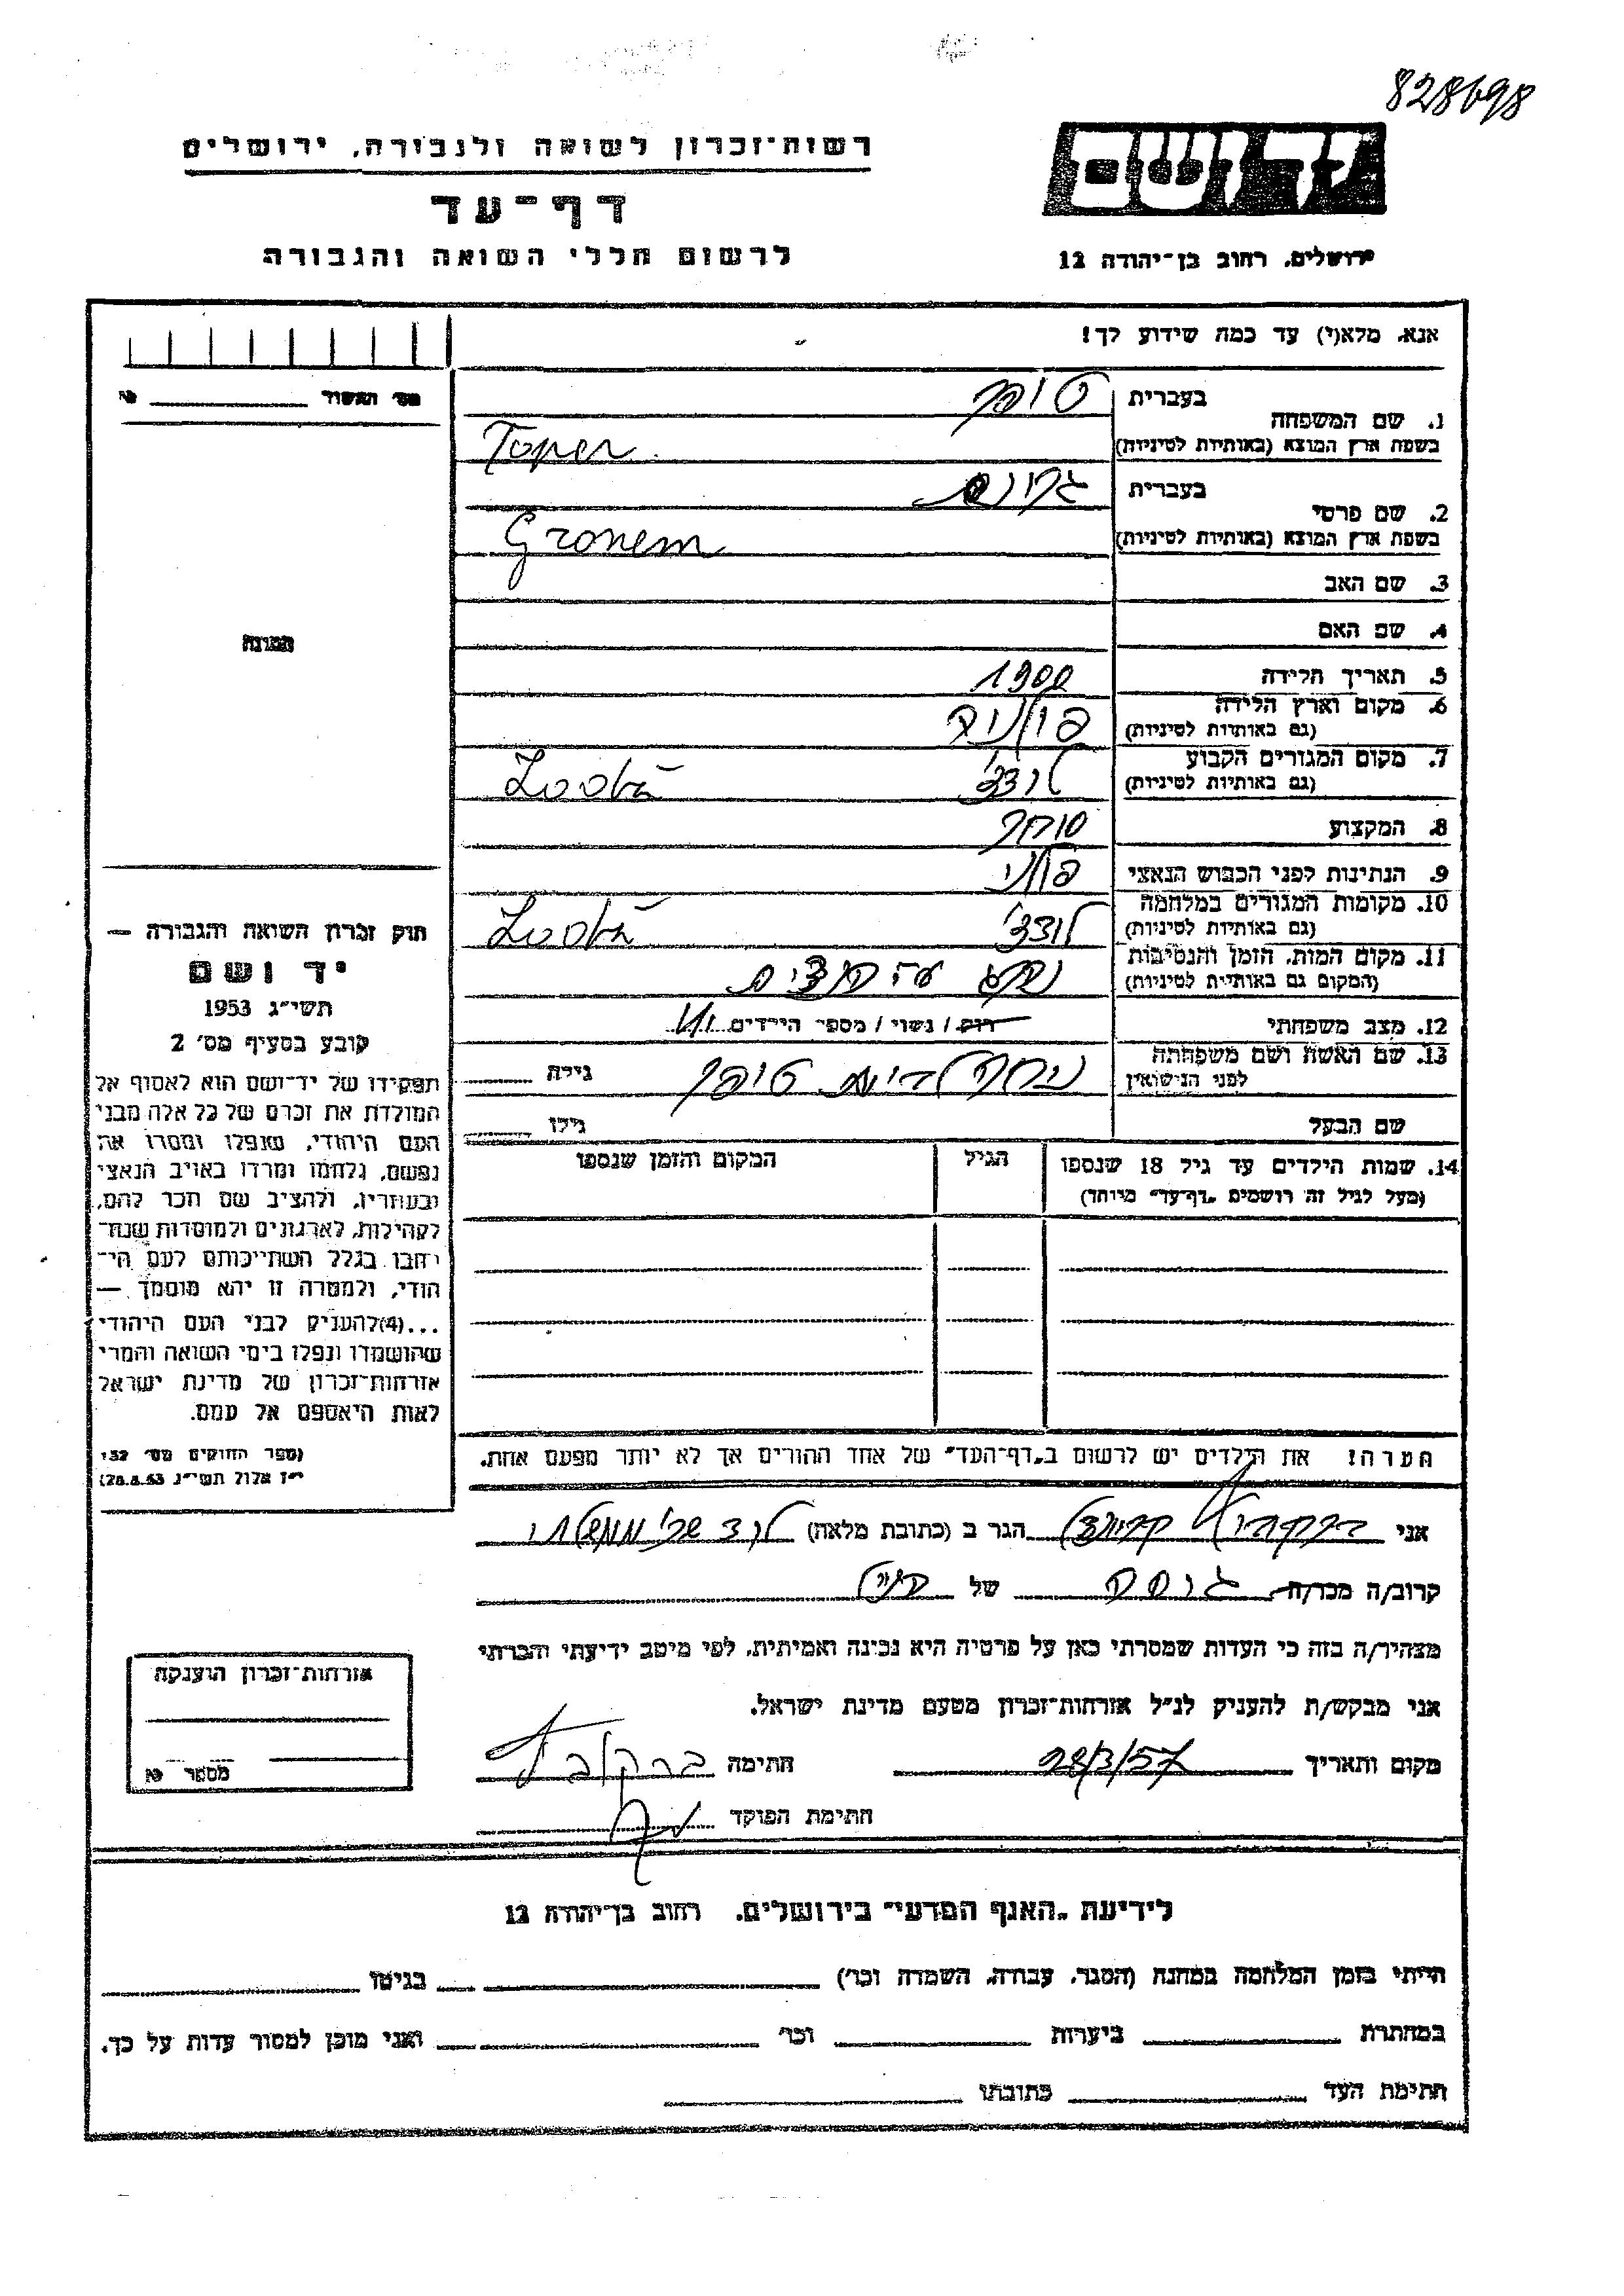 828698
רשות־זכרון לשואה ולגבורה, ירושלים
דף־עד
לרשום חללי השואה והגבורה
יד ושם
ירושלים, רחוב בן־יהודה 12
אנא, מלא(י) עד כמה שידוע לך!
מס' האשור
1. שם המשפחה
בעברית טופר
בשפת ארץ המוצא (באותיות לטיניות) Toper
2. שם פרטי
בעברית גרונם
בשפת ארץ המוצא (באותיות לטיניות) Gronem
3. שם האב
4. שם האם
5. תאריך הלידה 1900
6. מקום וארץ הלידה (גם באותיות לטיניות) פולניה
7. מקום המגורים הקבוע (גם באותיות לטיניות) לודז'
8. המקצוע סוחר
9. הנתינות לפני הכבוש הנאצי פולני
10. מקומות המגורים במלחמה (גם באותיות לטיניות) לודז'
11. מקום המות, הזמן והנסיבות (המקום גם באותיות לטיניות)
12. מצב משפחתי רוק / נשוי / מספר הילדים
13. שם האשה ושם משפחתה לפני הנישואין טופר גילה
שם הבעל גילו
14. שמות הילדים עד גיל 18 שנספו
(מעל לגיל זה רושמים „דף־עד" מיוחד)
הגיל
המקום והזמן שנספו
הערה! את הילדים יש לרשום ב„דף־העד" של אחד ההורים אך לא יותר מפעם אחת.
התמונה
חוק זכרון השואה והגבורה —
יד ושם
תשי"ג 1953
קובע בסעיף מס' 2
תפקידו של יד־ושם הוא לאסוף אל
המולדת את זכרם של כל אלה מבני
העם היהודי, שנפלו ומסרו את
נפשם, נלחמו ומרדו באויב הנאצי
ובעוזריו, ולהציב שם וזכר להם,
לקהילות, לארגונים ולמוסדות שנח־
רבו בגלל השתייכותם לעם הי־
הודי, ולמטרה זו יהא מוסמך —
...(4) להעניק לבני העם היהודי
שהושמדו ונפלו בימי השואה והמרי
אזרחות־זכרון של מדינת ישראל
לאות היאספם אל עמם.
(ספר החוקים מס' 132
י"ז אלול תשי"ג 28.8.53)
אני הגר ב (כתובת מלאה)
קרוב/ה מכר/ה של
מצהיר/ה בזה כי העדות שמסרתי כאן על פרטיה היא נכונה ואמיתית, לפי מיטב ידיעתי והכרתי
אני מבקש/ת להעניק לנ"ל אזרחות־זכרון מטעם מדינת ישראל.
מקום ותאריך 28/3/57 חתימה
חתימת הפוקד
אזרחות־זכרון הוענקה
מספר
לידיעת „האגף המדעי" בירושלים, רחוב בן־יהודה 12
הייתי בזמן המלחמה במחנה (הסגר, עבודה, השמדה וכו') בגיטו
במחתרת ביערות וכו' ואני מוכן למסור עדות על כך.
חתימת העד כתובתו